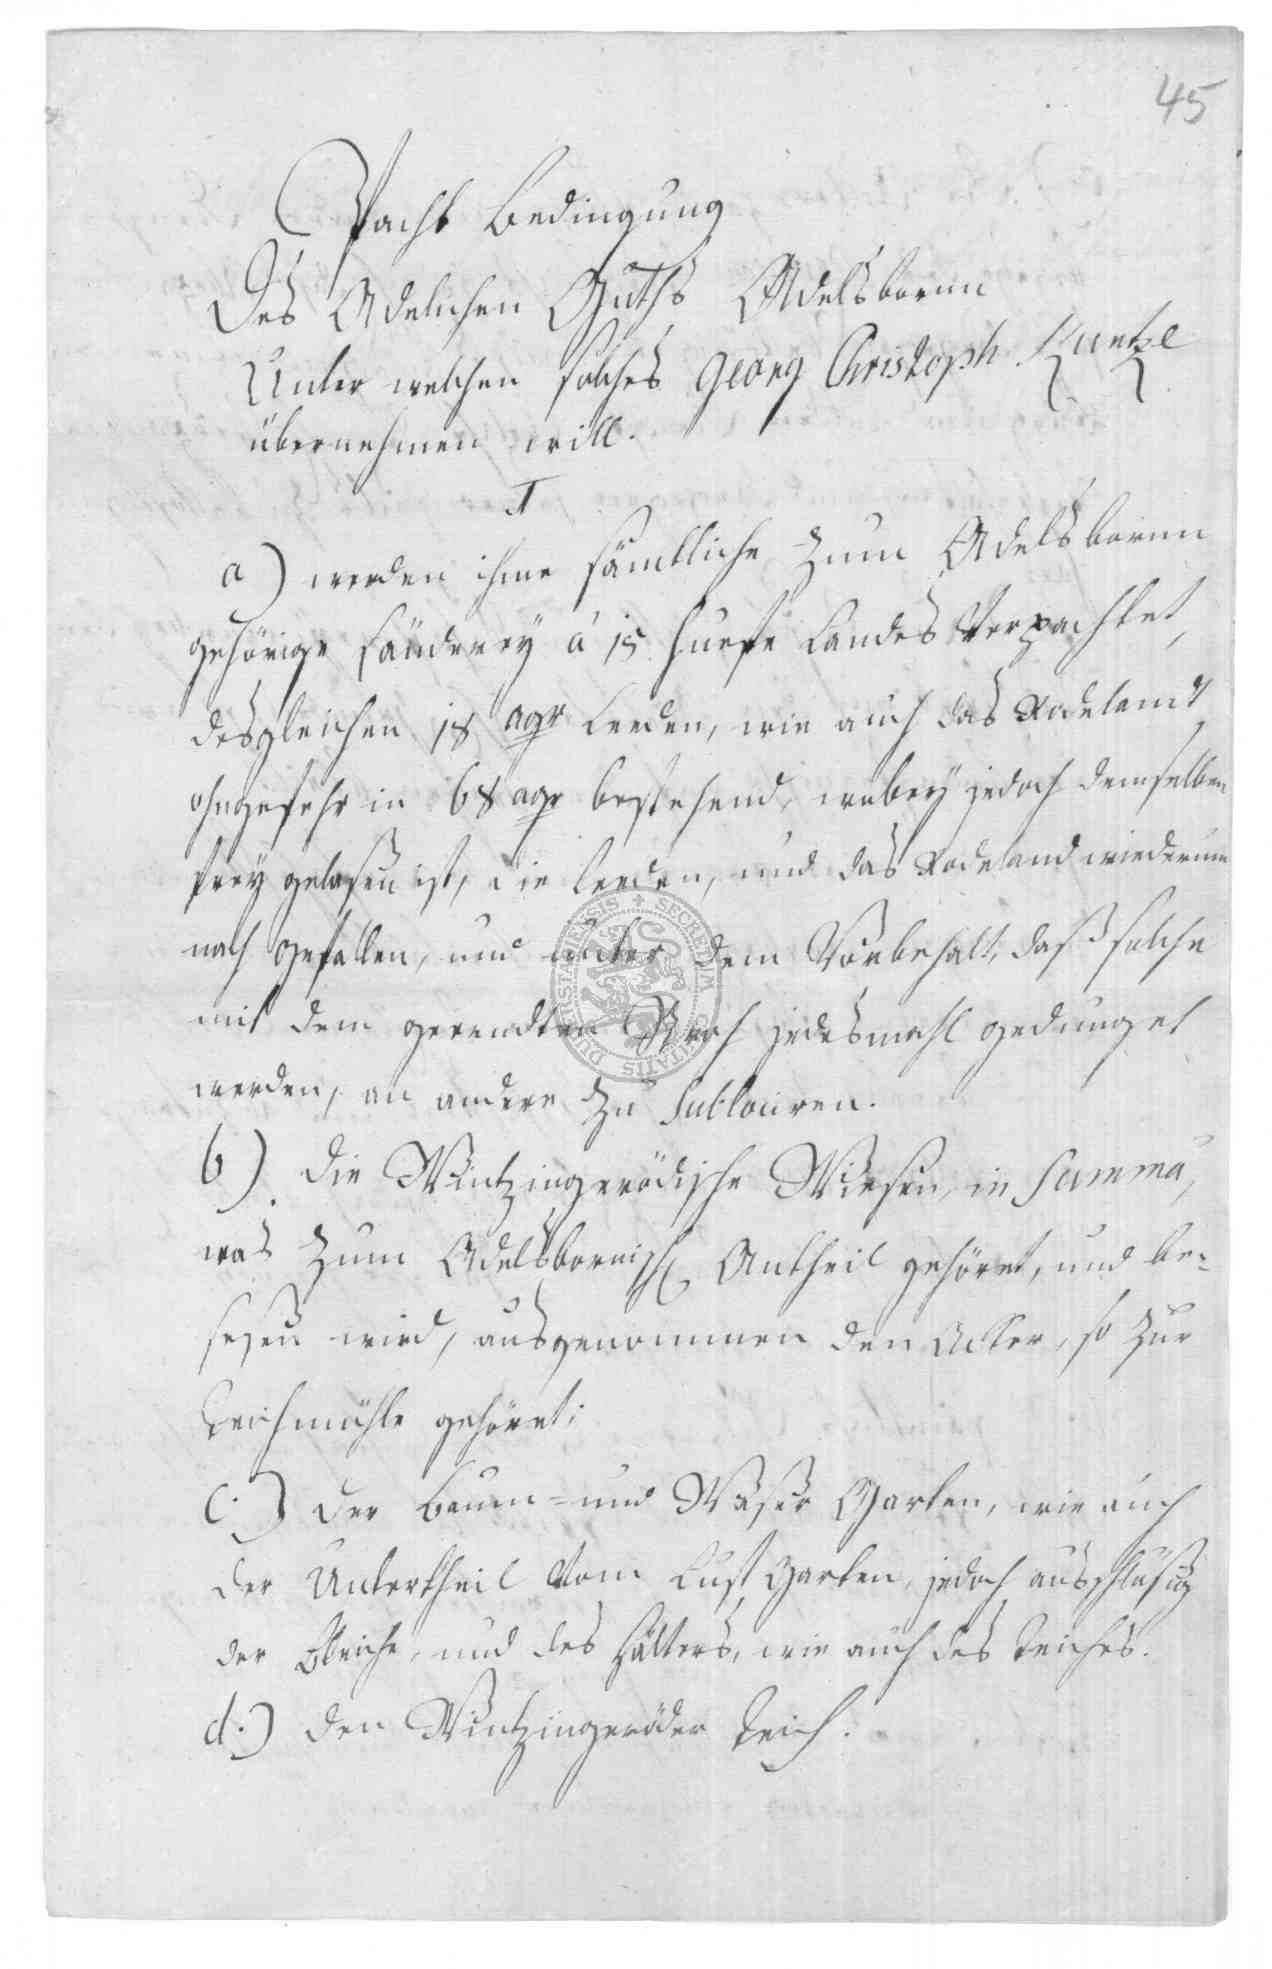 45
Pacht Bedingung
Des Adelichen Guths Adelsborn
Unter welchen solches Georg Christoph Kuntze
übernehmen will.
I
a) werden ihme sämbtliche zum Adelsborn
gehörige Länderey á 15 Huefe Landes Verpachtet,
desgleichen 18 agr Leeden, wie auch das Rodelandt
ohngefehr in 68 agr bestehend, wobey jedoch demselben
frey gelaßen ist, die Leeden, und das Rodeland wiederum
nach gefallen, und unter dem Vorbehalt, daß solche
mit dem geerndten Stroh jedesmahl gedunget
werden, an andere zu sublociren.
b) Die Wintzingerödische Wiesen, in Summa,
was zum Adelsbornisch Antheil gehöret, und be-
seßen wird, ausgenommen den Acker, so zur
Teichmühle gehöret;
c.) der Baum- und Waßer Garten, wie auch
der Untertheil vom Lust Garten, jedoch ausschlüßig
der Bleiche, und des Hälters, wie auch des Teiches.
d.) den Wintzingeröder Teich.
SECRETUM CIVITATIS DUDERSTADIENSIS